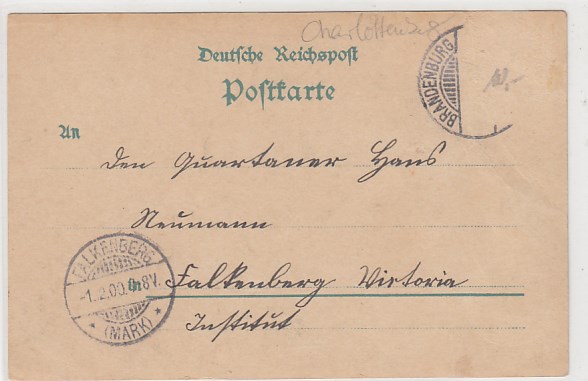 Charlottenburg
Deutsche Reichspost
Postkarte
BRANDENBURG
An
Den Quartaner Hans
Neumann
in Falkenberg Victoria
Institut
FALKENBERG
-1.2.00. 8V.
* (MARK) *